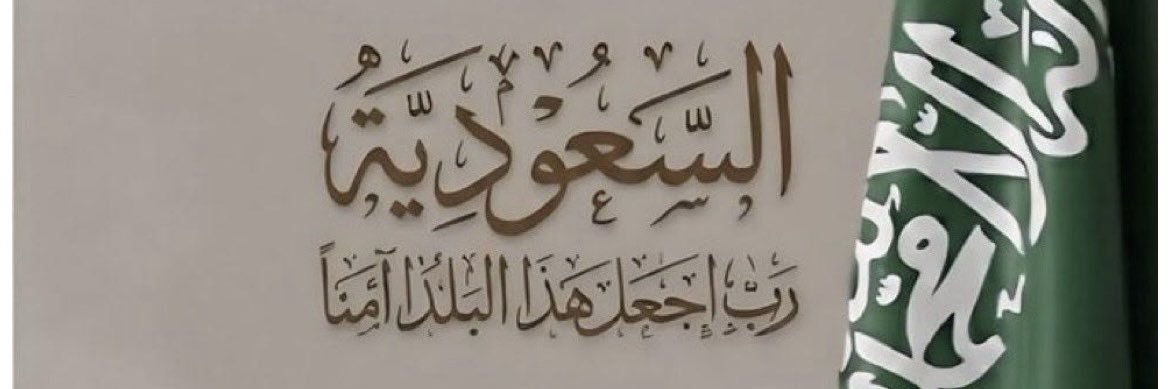 السَّعُودِيَّةُ
رَبِّ اِجْعَل هَذَا البَلَدَا آمِنَاً